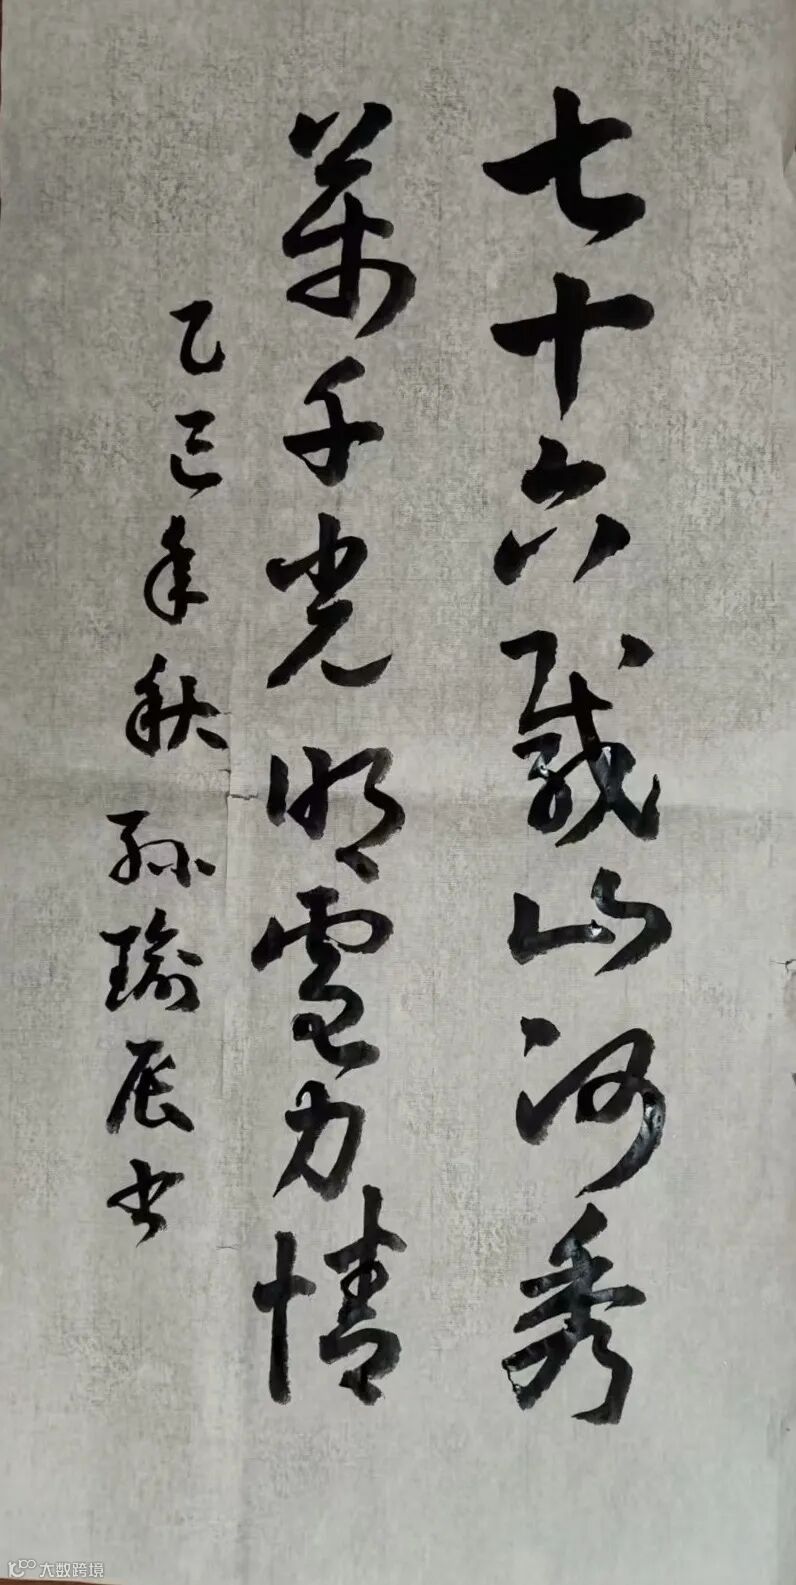 七十六载山河秀
萬千光明電力情
乙巳年秋 孫瑜辰书
大数跨境